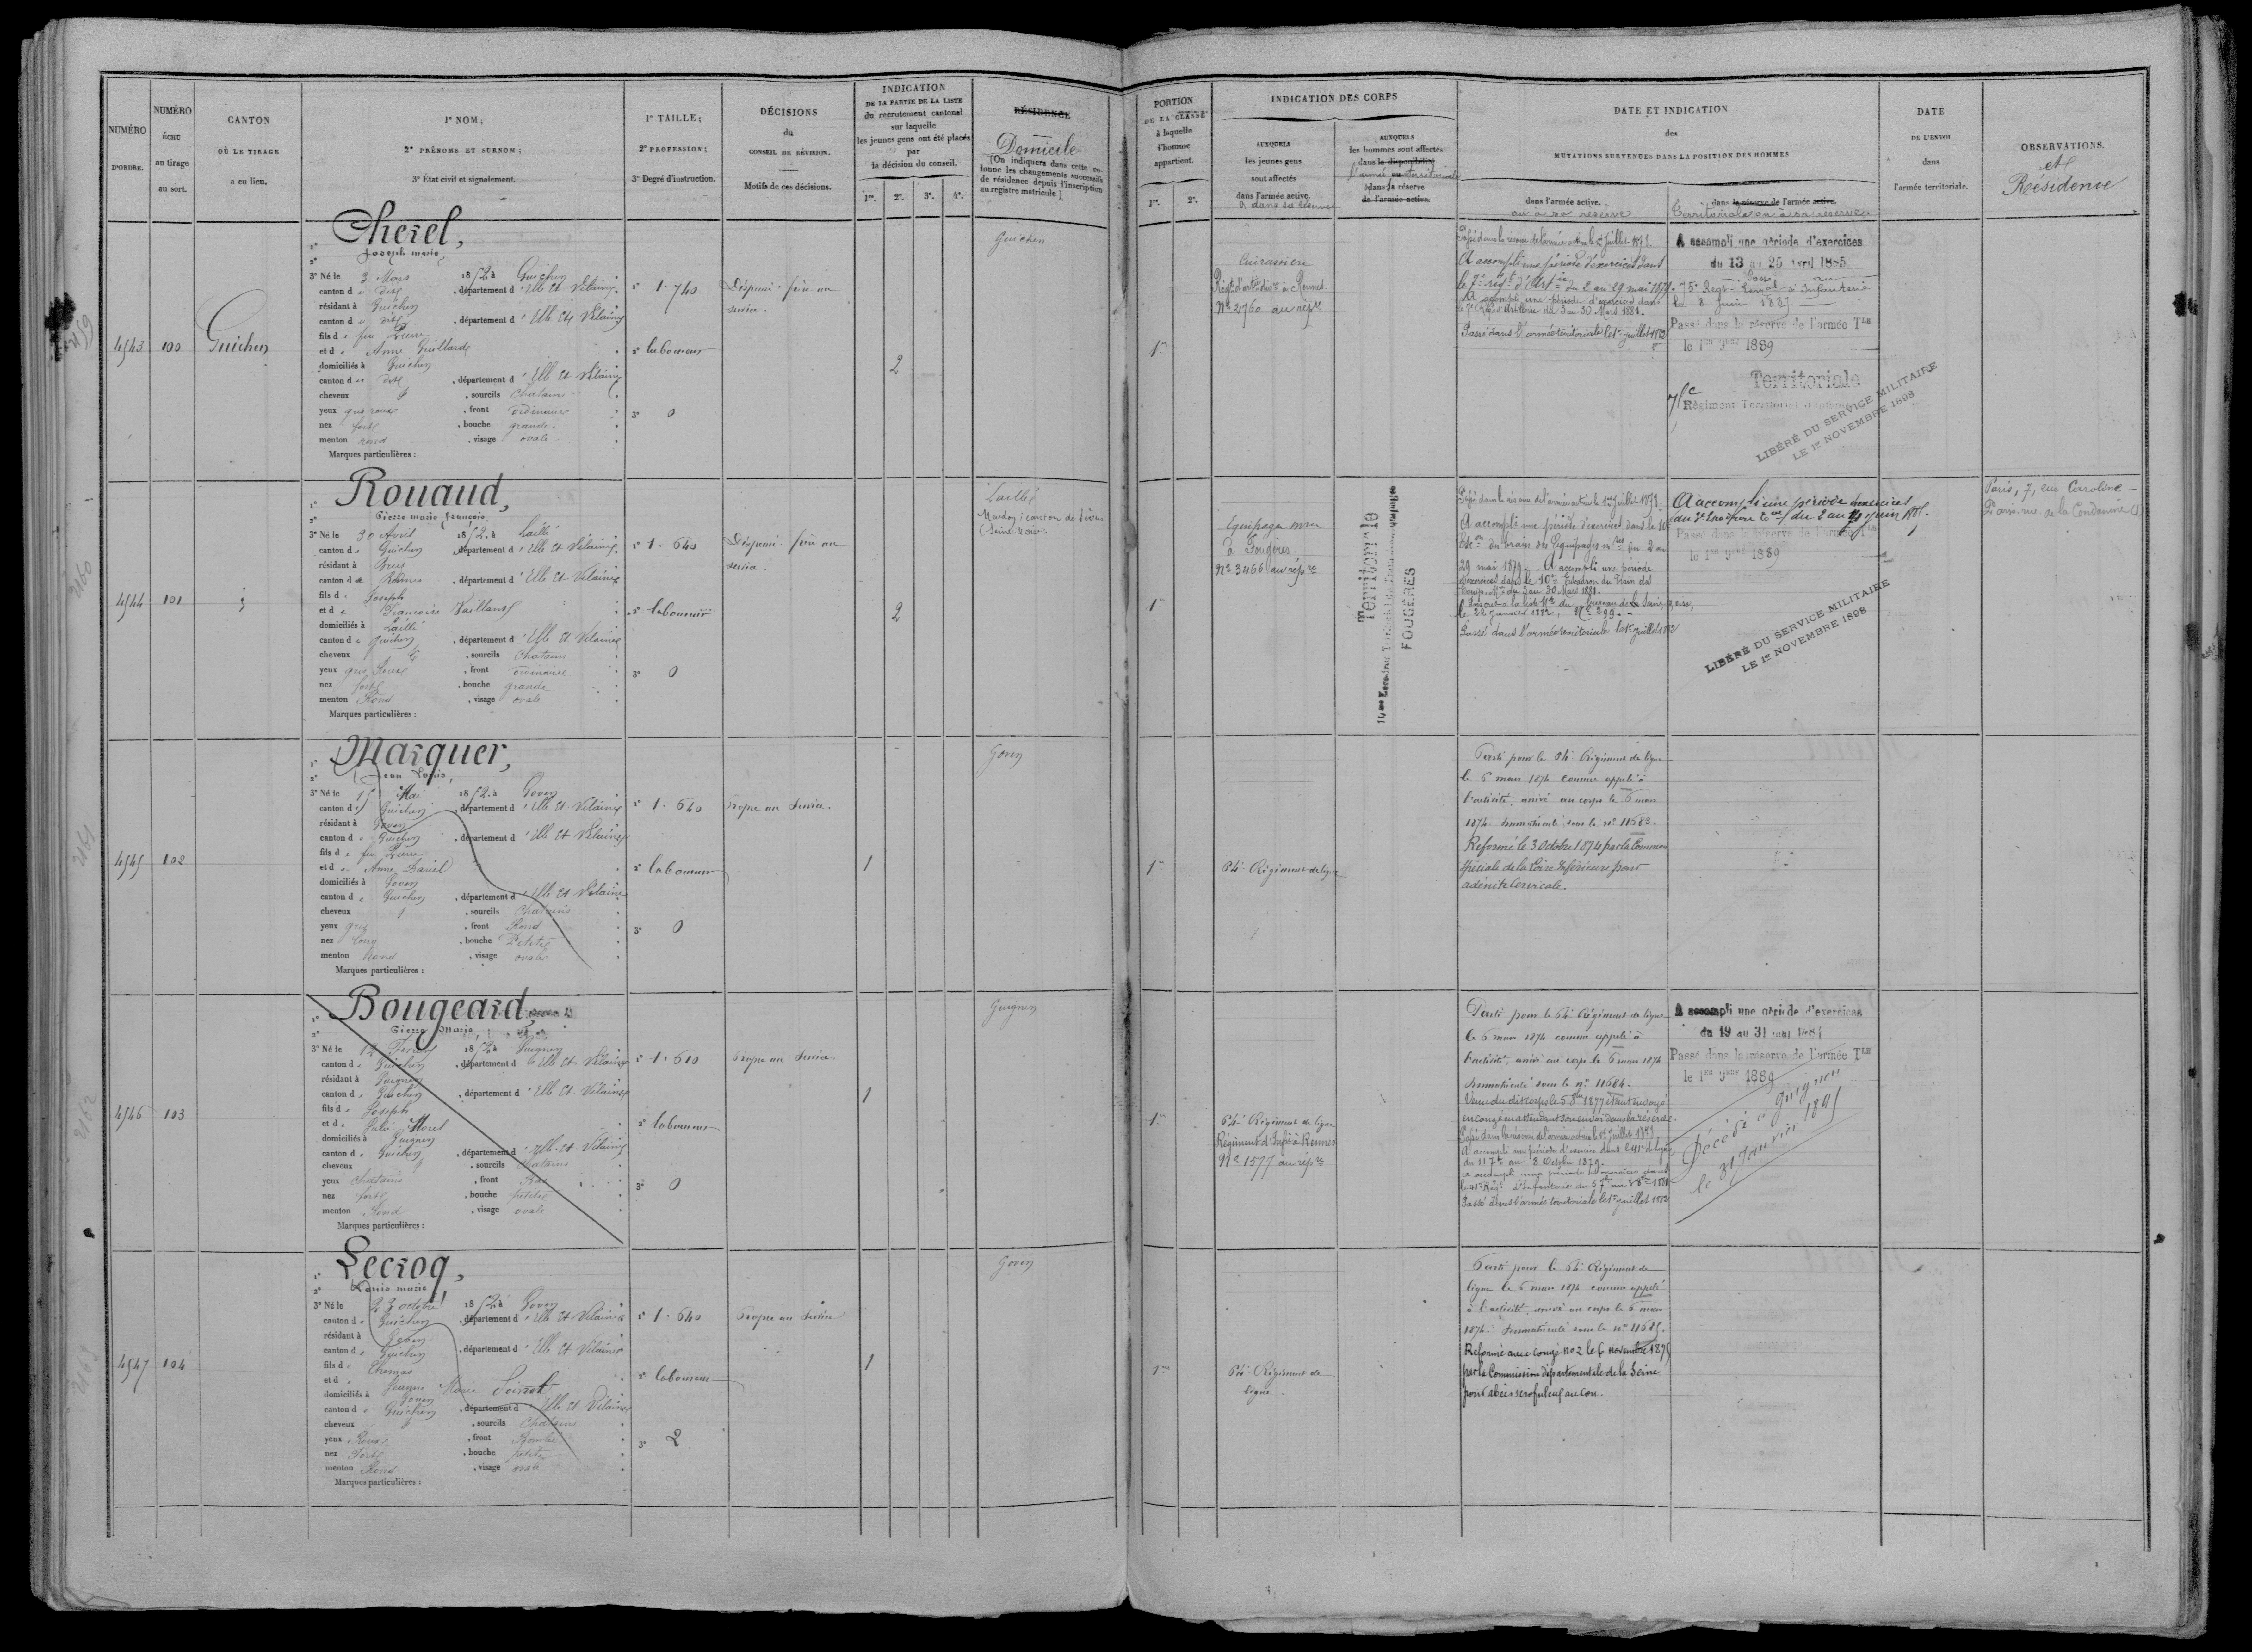 NUMÉRO D'ORDRE.
NUMÉRO ÉCHU au tirage au sort.
CANTON OÙ LE TIRAGE a eu lieu.
1° NOM;
2° PRÉNOMS ET SURNOM;
3° État civil et signalement.
1° TAILLE;
2° PROFESSION;
3° Degré d'instruction.
DÉCISIONS
du
CONSEIL DE RÉVISION.
Motifs de ces décisions.
INDICATION
DE LA PARTIE DE LA LISTE
du recrutement cantonal
sur laquelle
les jeunes gens ont été placés
par
la décision du conseil.
1re. 2e. 3e. 4e.
RÉSIDENCE
Domicile
(On indiquera dans cette colonne les changements successifs de résidence depuis l'inscription au registre matricule).
PORTION
DE LA CLASSE
à laquelle
l'homme
appartient.
1re. 2e.
INDICATION DES CORPS
AUXQUELS
les jeunes gens
sont affectés
dans l'armée active.
& dans sa réserve
AUXQUELS
les hommes sont affectés
dans la disponibilité
l'armée territoriale
dans la réserve
de l'armée active.
DATE ET INDICATION
des
MUTATIONS SURVENUES DANS LA POSITION DES HOMMES
dans l'armée active.
ou à sa réserve
dans la réserve de l'armée active.
Territoriale ou à sa réserve
DATE
DE L'ENVOI
dans
l'armée territoriale.
OBSERVATIONS.
et
Résidence
4543
100
Guichen
1° Cherel,
2° Joseph marie
3° Né le 3 Mars 1852 à Guichen
canton d dit, département d'Ille et Vilaine
résidant à Guichen
canton d dit, département d'Ille et Vilaine
fils d feu Pierre
et d Anne Guillard
domiciliés à Guichen
canton d dit, département d'Ille et Vilaine
cheveux, sourcils Chatains
yeux gris roux, front ordinaire
nez fort, bouche grande
menton rond, visage ovale
Marques particulières :
1° 1.740
2° laboureur
3° 0
Dispensé. frère au
service.
2
Guichen
1re
Cuirassiers
Régt d'artillerie à Rennes
No 2760 au répre
Passé dans la réserve de l'armée active le 1er Juillet 1878.
A accompli une période d'exercices dans
le 7e régt d'Artie du 2 au 29 mai 1879.
A accompli une période d'exercices dans
le 7e Régt d'Artillerie du 3 au 30 Mars 1881.
Passé dans l'armée territoriale le 1er juillet 1882
A accompli une période d'exercices
du 13 au 25 avril 1885
Passé au
75e Regt Terral d'Infanterie
le 8 juin 1887
Passé dans la réserve de l'armée Tle
le 1er 9bre 1889
Territoriale
75e Régiment Territorial d'Infanterie
LIBÉRÉ DU SERVICE MILITAIRE
LE 1er NOVEMBRE 1898
4544
101
1° Rouaud,
2° Pierre marie françois
3° Né le 30 Avril 1852 à Laillé
canton d Guichen, département d'Ille et Vilaine
résidant à Bruz
canton d Rennes, département d'Ille et Vilaine
fils d Joseph
et d Françoise Vaillant
domiciliés à Laillé
canton d Guichen, département d'Ille et Vilaine
cheveux, sourcils Chatains
yeux gris roux, front ordinaire
nez fort, bouche grande
menton Rond, visage ovale
Marques particulières :
1° 1.640
2° laboureur
3° 0
Dispensé. frère au
service.
2
Laillé
Meudon, canton de Sèvres
(Seine & Oise)
1re
Equipages mres
à Fougères
No 3466 au répre
Territoriale
FOUGÈRES
Passé dans la réserve de l'armée active le 1er Juillet 1878.
A accompli une période d'exercices dans le 10e
Escon du train des Equipages mres du 2 au
29 mai 1879. A accompli une période
d'exercices dans le 10e Escadron du Train des
Equip. Mres du 3 au 30 Mars 1881.
le 22 janvier 1882, No 299.
Passé dans l'armée territoriale le 1er juillet 1882
A accompli une période d'exercices
Passé dans la réserve de l'armée Tle
le 1er 9bre 1889
LIBÉRÉ DU SERVICE MILITAIRE
LE 1er NOVEMBRE 1898
Paris, 7, rue Caroline
4545
102
1° Marquer,
2° Jean Louis,
3° Né le 15 Mai 1852 à Goven
canton d Guichen, département d'Ille et Vilaine
résidant à Goven
canton d Guichen, département d'Ille et Vilaine
fils d feu Pierre
et d Anne Daniel
domiciliés à Goven
canton d Guichen, département d'Ille et Vilaine
cheveux, sourcils Chatains
yeux gris, front Rond
nez long, bouche Petite
menton Rond, visage ovale
Marques particulières :
1° 1.640
2° laboureur
3° 0
Propre au service.
1
Goven
1re
64e Régiment de ligne
Parti pour le 64e Régiment de ligne
le 6 mars 1874 comme appelé à
l'activité, arrivé au corps le 6 mars
1874. Immatriculé sous le no 11683.
Réformé le 3 Octobre 1874 par la Common
spéciale de la Loire Inférieure pour
adénite Cervicale.
4546
103
1° Bougeard,
2° Pierre Marie,
3° Né le 12 Février 1852 à Guignen
canton d Guichen, département d'Ille et Vilaine
résidant à Guignen
canton d Guichen, département d'Ille et Vilaine
fils d Joseph
et d Julie Morel
domiciliés à Guignen
canton d Guichen, département d'Ille et Vilaine
cheveux, sourcils Chatains
yeux chatains, front Bas
nez fort, bouche petite
menton Rond, visage ovale
Marques particulières :
1° 1.610
2° laboureur
3° 0
Propre au service.
1
Guignen
1re
64e Régiment de ligne
Régiment d'Infie à Rennes
No 1577 au répre
Parti pour le 64e Régiment de ligne
le 6 mars 1874 comme appelé à
l'activité, arrivé au corps le 6 mars 1874
Immatriculé sous le no 11684.
Venu du dit corps le 5 8bre 1877 étant envoyé
en congé en attendant son envoi dans la réserve.
Passé dans la réserve de l'armée active le 1er Juillet 1878.
A accompli une période d'exercices dans le 41e de ligne
du 11 7bre au 8 Octobre 1879.
a accompli une période d'exercices dans
le 41e Régt d'Infanterie
Passé dans l'armée territoriale le 1er juillet 1882
A accompli une période d'exercices
du 19 au 31 mai 1884
Passé dans la réserve de l'armée Tle
le 1er 9bre 1889
Décédé à Guignen
le 31 Janvier 1895
4547
104
1° Lecroq,
2° Louis marie
3° Né le 23 octobre 1852 à Goven
canton d Guichen, département d'Ille et Vilaine
résidant à Goven
canton d Guichen, département d'Ille et Vilaine
fils d Thomas
et d Jeanne Marie
domiciliés à Goven
canton d Guichen, département d'Ille et Vilaine
cheveux, sourcils Chatains
yeux Roux, front Bombé
nez Fort, bouche petite
menton Rond, visage ovale
Marques particulières :
1° 1.640
2° laboureur
3° 2
Propre au service
1
Goven
1re
64e Régiment de
ligne
Parti pour le 64e Régiment de
ligne le 6 mars 1874 comme appelé
à l'activité, arrivé au corps le 6 mars
1874. Immatriculé sous le no 11685.
Réformé avec congé no 2 le 6 novembre 1875
par la Commission départementale de la Seine
pour abcès scrofuleux au cou.